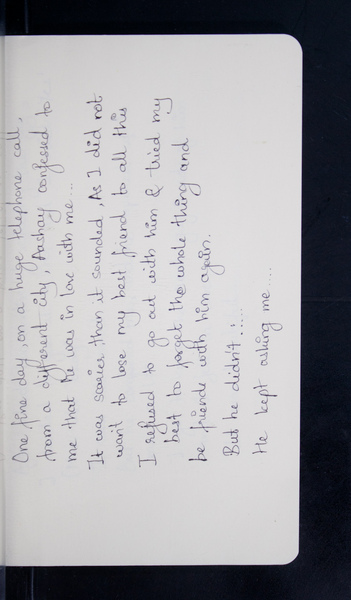 One fine day, on a huge telephone call,
from a different city, Aashay confessed to
me that he was in love with me...
It was scarier than it sounded. As I did not
want to lose my best friend to all this
I refused to go out with him & tried my
best to forget the whole thing and
be friends with him again.
But he didn't!....
He kept asking me....